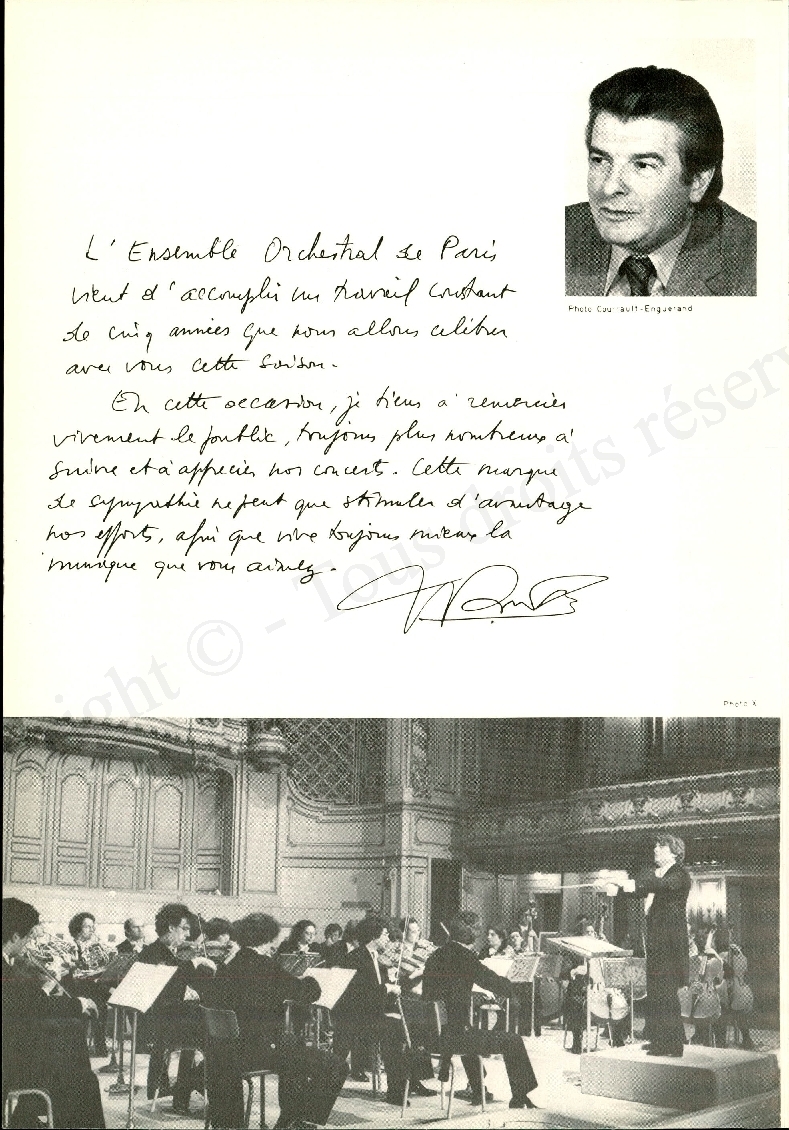 Photo Courrault-Enguerand
L' Ensemble Orchestral de Paris
vient d'accomplir un travail constant
de cinq années que nous allons célébrer
avec vous cette saison.
En cette occasion, je tiens à remercier
vivement le public, toujours plus nombreux à
suivre et à apprécier nos concerts. Cette marque
de sympathie ne peut que stimuler d'avantage
nos efforts, afin que vive toujours mieux la
musique que vous aimez.
Photo X
© - Tous droits réserv